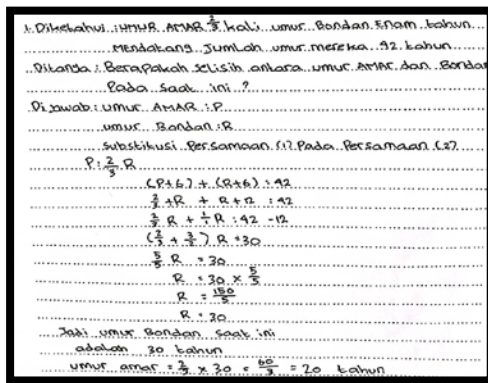 1. Diketahui : UMUR AMAR 2/3 kali umur Bondan Enam tahun
Mendatang Jumlah umur mereka 42 tahun
Ditanya : Berapakah selisih antara umur AMAR dan Bondan
Pada saat ini ?
Dijawab : umur AMAR : P
umur Bondan : R
Substitusi Persamaan (1) Pada Persamaan (2)
P : 2/3 R
(P+6) + (R+6) : 42
2/3 + R + R + 12 : 42
R + R : 42 - 12
R = 30
R = 30
R = 30 ×
R = 150/5
R = 30
Jadi umur Bondan saat ini
adalah 30 tahun
umur amar = 2/3 × 30 = 60/3 = 20 tahun